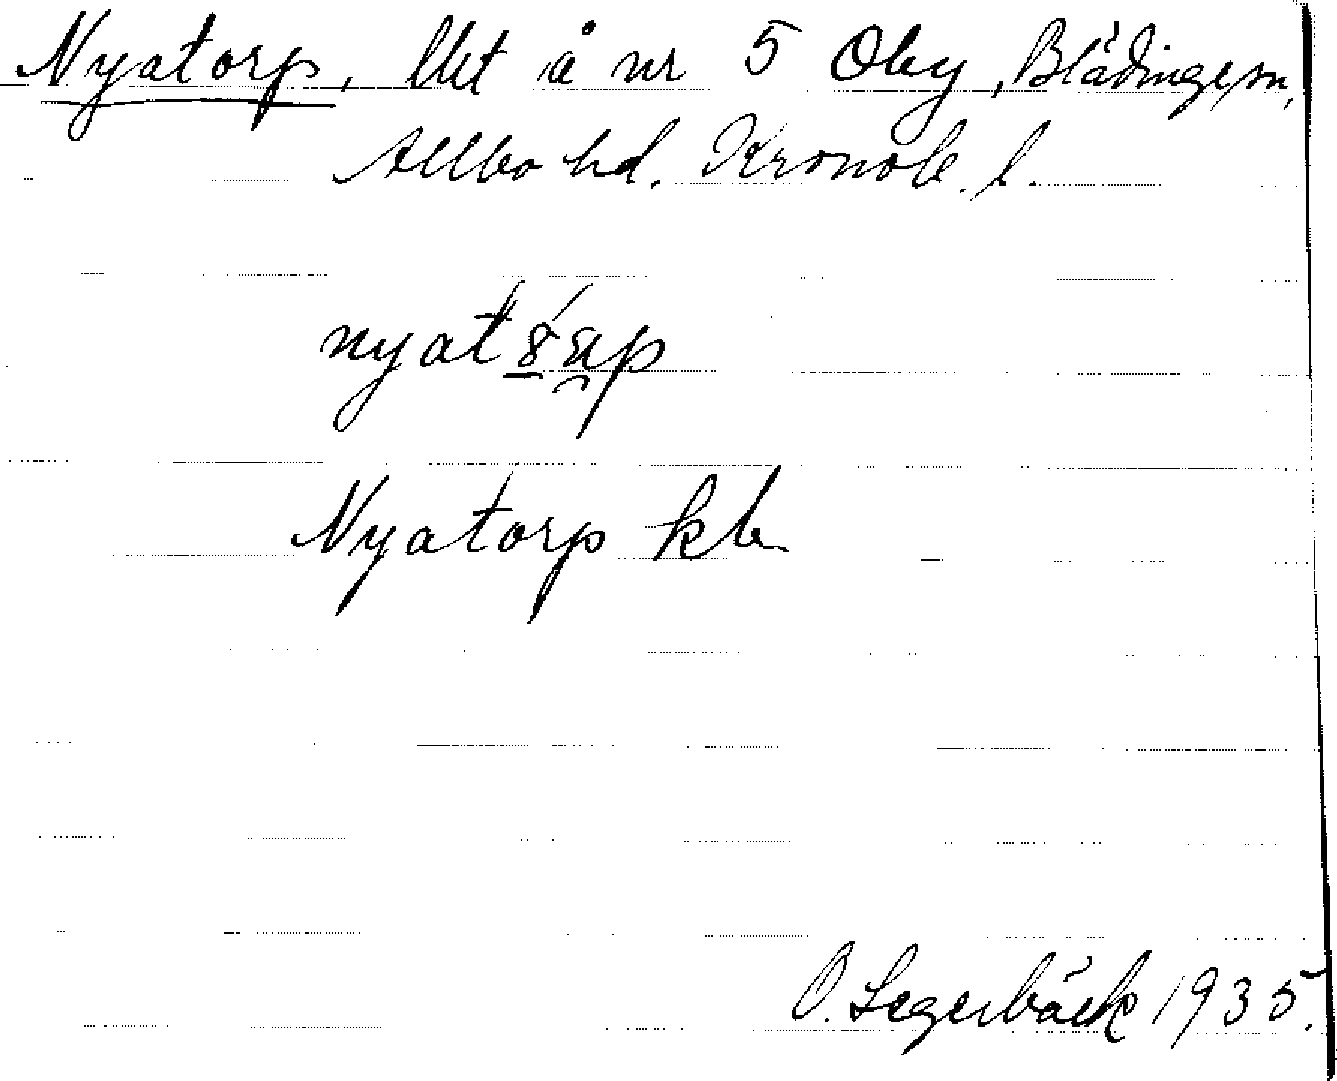 Nyatorp, lht å nr 5 Oby, Blädinge sn,
Allbo hd. Kronob. l.
Nyatorp kb
O. Segerbäck 1935.